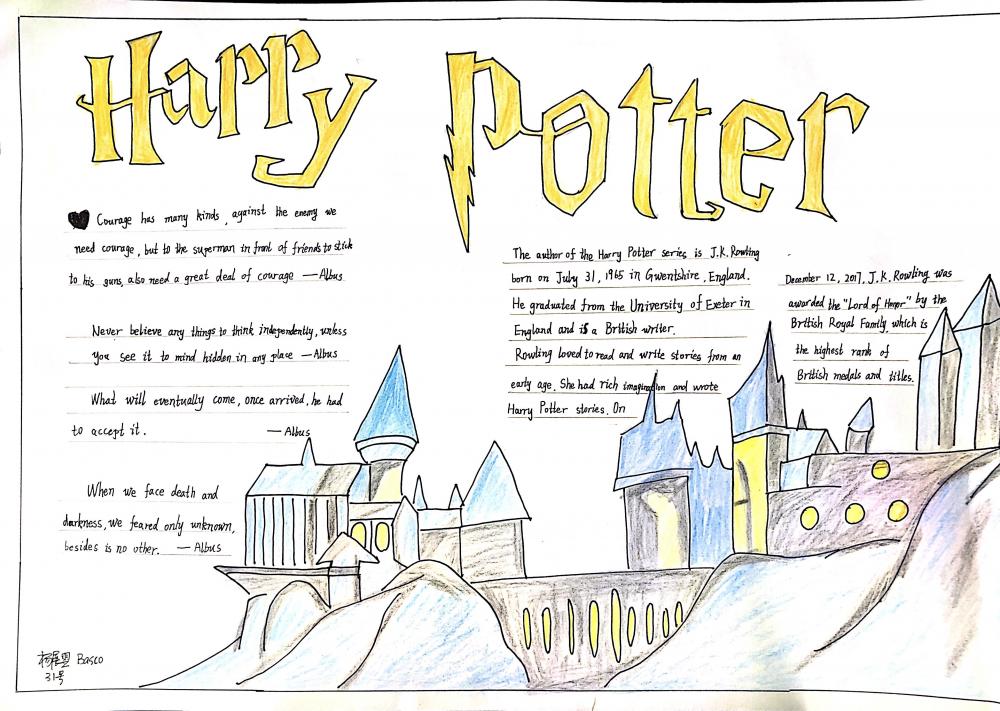 Harry Potter
Courage has many kinds, against the enemy we
need courage, but to the superman in front of friends to stick
to his guns, also need a great deal of courage —Albus
Never believe any things to think independently, unless
you see it to mind hidden in any place —Albus
What will eventually come, once arrived, he had
to accept it. — Albus
When we face death and
darkness, we feared only unknown,
besides is no other. — Albus
The author of the Harry Potter series is J.K. Rowling
born on July 31, 1965 in Gwentshire, England.
He graduated from the University of Exeter in
England and is a British writer.
Rowling loved to read and write stories from an
early age. She had rich imagination and wrote
Harry Potter stories. On
December 12, 2017, J.K. Rowling was
awarded the "Lord of Honor" by the
British Royal Family, which is
the highest rank of
British medals and titles.
Basco
31号